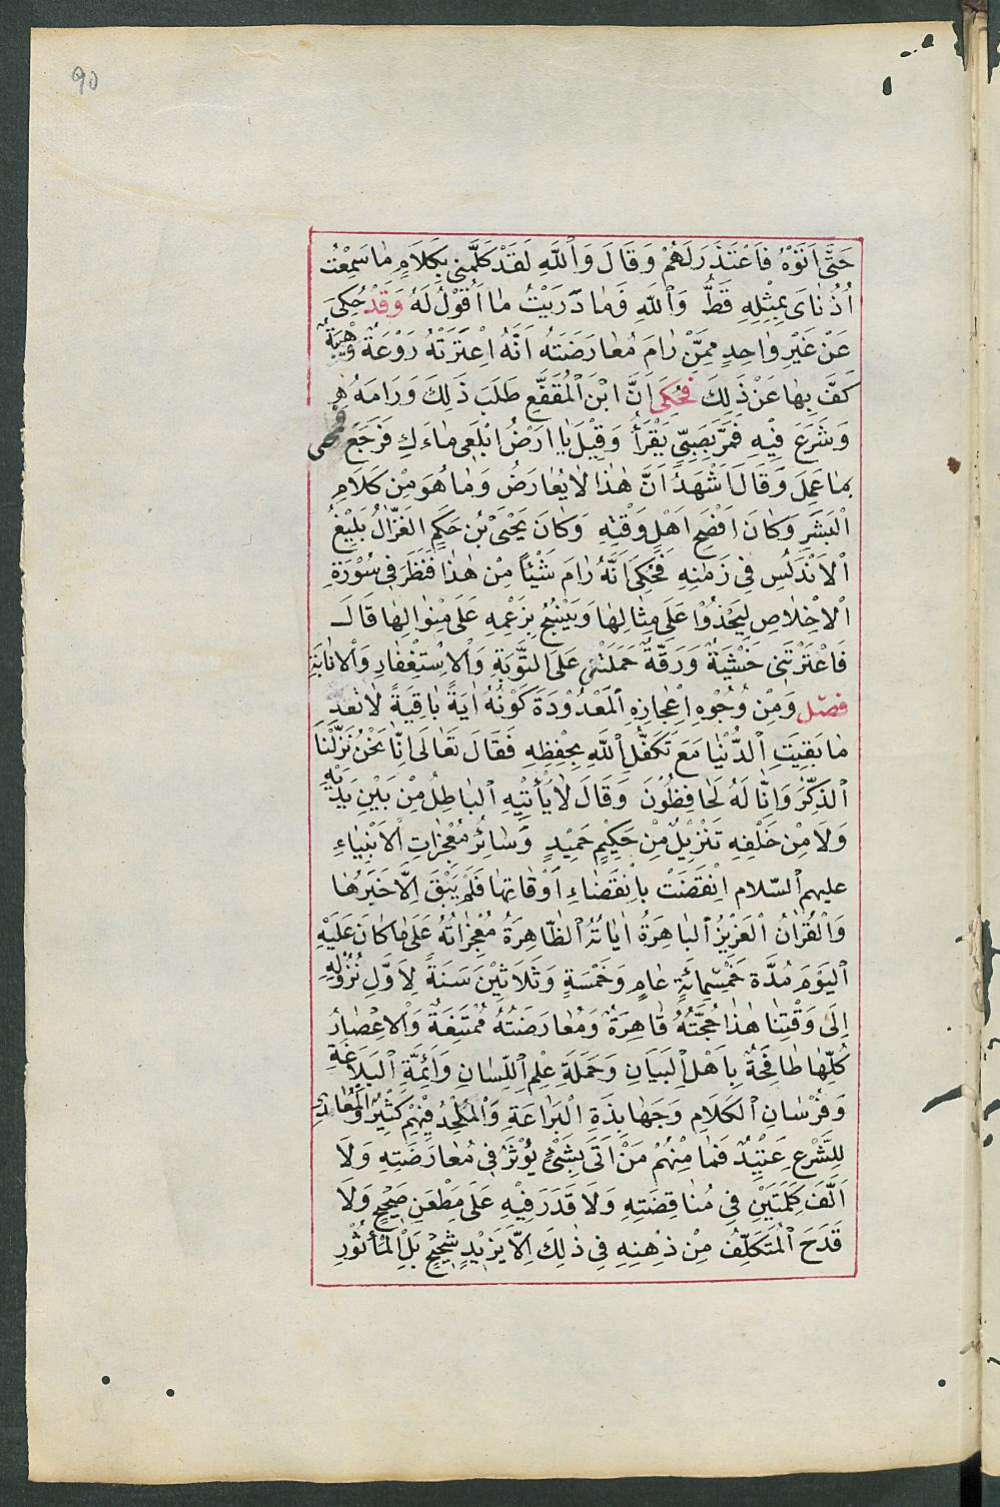 90
حَتَّى اَتَوْهُ فَاعْتَذَرَ لَهُمْ وَقَالَ وَاللّٰهِ لَقَدْ كَلَّمَنِي بِكَلَامٍ مَا سَمِعْتْ
اُذُنَاىَ بِمِثْلِهِ قَطُّ وَاللّٰهِ فَمَا دَرَيْتُ مَا اَقُوْلُ لَهُ وَقَدْ حُكِىَ
عَنْ غَيْرِ وَاحِدٍ مِمَّنْ رَامَ مُعَارَضَتَهُ اَنَّهُ اِعْتَرَتْهُ رَوْعَةٌ وَهَيْبَةٌ
كَفَّ بِهَا عَنْ ذٰلِكَ فَحُكِىَ اَنَّ ابْنَ الْمُقَفَّعِ طَلَبَ ذٰلِكَ وَرَامَهُ
وَشَرَعَ فِيْهِ فَمَرَّ بِصَبِيٍّ يَقْرَأُ وَقِيْلَ يَا اَرْضُ ابْلَعِى مَاءَكِ فَرَجَعَ فَمَحٰى
بِمَا عَمِلَ وَقَالَ اَشْهَدُ اَنَّ هٰذَا لَا يُعَارَضُ وَمَا هُوَ مِنْ كَلَامِ
الْبَشَرِ وَكَانَ اَفْصَحِ اَهْلِ وَقْتِهِ وَكَانَ يَحْيَى بْنِ حَكَمِ الْغَزَّالُ بَلِيْغُ
الْاَنْدَلُسِ فِي زَمَنِهِ فَحُكِىَ اَنَّهُ رَامَ شَيْئًا مِنْ هٰذَا فَنَظَرَ فِي سُوْرَةِ
الْاِخْلَاصِ لِيَحْذُوْا عَلَى مِثَالِهَا وَيَنْسُجُ بِزَعْمِهِ عَلَى مِنْوَالِهَا قَالَ
فَاعْتَرَتْنِى خَشْيَةٌ وَرِقَّةٌ حَمَلَتْنِى عَلَى التَّوْبَةِ وَالْاِسْتِغْفَارِ وَالْاِنَابَةِ
فصل وَمِنْ وُجُوْهِ اِعْجَازِهِ الْمَعْدُوْدَةِ كَوْنُهُ اٰيَةً بَاقِيَةً لَا تُعْدَ
مَا بَقِيَتِ الدُّنْيَا مَعَ تَكَفُّلِ اللّٰهِ بِحِفْظِهِ فَقَالَ تَعَالَى اِنَّا نَحْنُ نَزَّلْنَا
الذِّكْرَ وَاِنَّا لَهُ لَحَافِظُوْنَ وَقَالَ لَا يَأْتِيْهِ الْبَاطِلُ مِنْ بَيْنِ يَدَيْهِ
وَلَا مِنْ خَلْفِهِ تَنْزِيْلٌ مِنْ حَكِيْمٍ حَمِيْدٍ وَسَائِرُ مُعْجِزَاتِ الْاَنْبِيَاءِ
عليهم السّلام اِنْقَضَتْ بِاِنْقَضَاءِ اَوْقَاتِهَا فَلَمْ يَبْقَ اِلَّا خَبَرُهَا
وَالْقُرْاٰنُ الْعَزِيْزُ الْبَاهِرَةُ اٰيَاتُهُ الظَّاهِرَةُ مُعْجِزَاتُهُ عَلَى مَا كَانَ عَلَيْهِ
الْيَوْمَ مُدَّةَ خَمْسِمِائَةِ عَامٍ وَخَمْسَةٍ وَثَلَاثِيْنَ سَنَةً لِاَوَّلِ نُزُوْلِهِ
اِلَى وَقْتِنَا هٰذَا حُجَّتُهُ قَاهِرَةٌ وَمُعَارَضَتُهُ مُمْتَنِعَةٌ وَالْاَعْصَارُ
كُلُّهَا طَافِحَةٌ بِاَهْلِ الْبَيَانِ وَحَمَلَةِ عِلْمِ اللِّسَانِ وَاَئِمَّةِ الْبَلَاغَةِ
وَفُرْسَانِ الْكَلَامِ وَجَهَابِذَةِ الْبَرَاعَةِ وَالْمُلْحِدُ فِيْهِمْ كَثِيْرٌ وَالْمُعَادِى
لِلشَّرْعِ عَتِيْدٌ فَمَا مِنْهُمْ مَنْ اَتَى بِشَىْءٍ يُؤْثَرُ فِي مُعَارَضَتِهِ وَلَا
اَلَّفَ كَلِمَتَيْنِ فِي مُنَاقِضَتِهِ وَلَا قَدَرَ فِيْهِ عَلَى مَطْعَنٍ صَحِيْحٍ وَلَا
قَدَحَ الْمُتَكَلِّفُ مِنْ ذِهْنِهِ فِي ذٰلِكَ اِلَّا بِزَنْدٍ شَحِيْحٍ بَلِ الْمَأْثُوْرِ